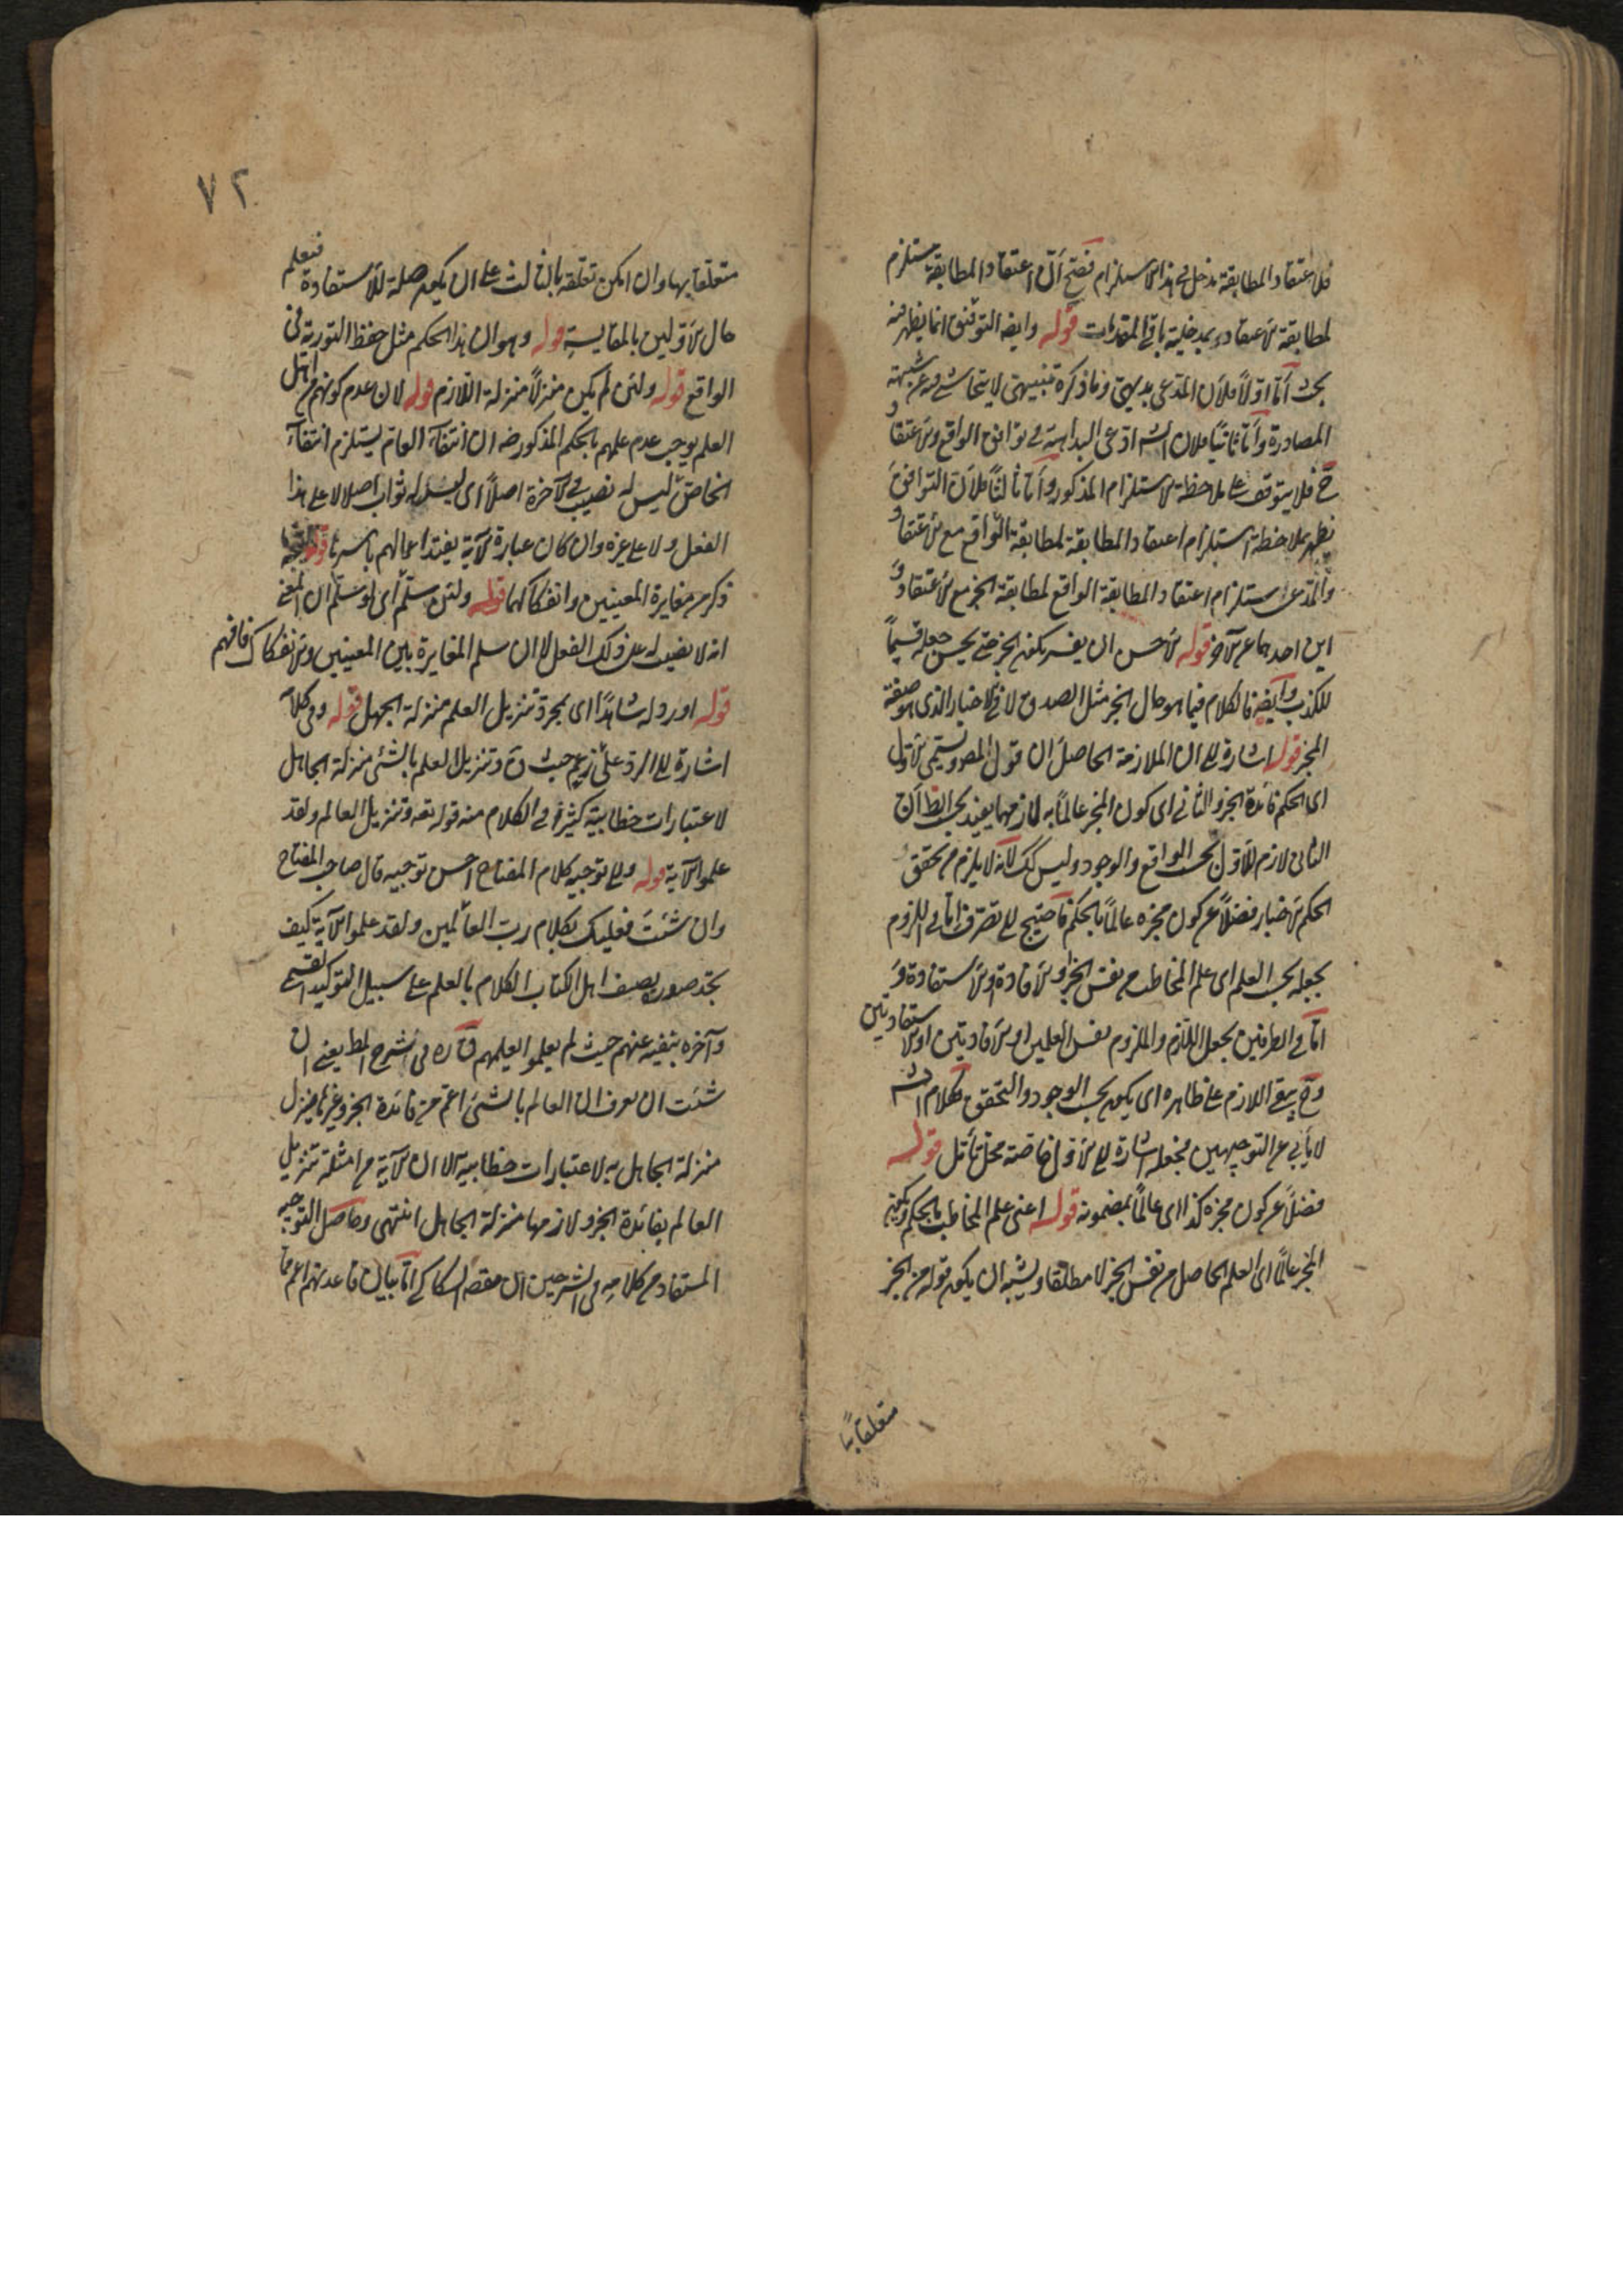 فلاعتقاد المطابقة مدخل في هذا الاستلزام فصح ان اعتقاد المطابقة مستلزم
لمطابقة الاعتقاد بمدخلية باقي المقدمات قوله وايضا التوفيق انما يظهر فيه
بحث اما اولا فلان المدعى بديهي وما ذكره تنبيهي لا يتحاشى فيه عن شبهة
المصادرة واما ثانيا فلان الش ادعى البداهة في توافق الواقع والاعتقاد
ح فلا يتوقف على ملاحظة الاستلزام المذكور واما ثالثا فلان التوافق
يظهر بملاحظة استلزام اعتقاد المطابقة لمطابقة الواقع مع الاعتقاد
والمدعى استلزام اعتقاد المطابقة الواقع لمطابقة الخبر مع الاعتقاد و
اين احدهما عن الآخر قوله الاحسن ان يفسر بكون الخبر حتى يحسن جعله قسيما
للكذب وايضا فالكلام فيما هو حال الخبر مثل الصدق لا في الاخبار الذي هو صفة
المخبر قوله اشارة الى ان الملازمة الحاصل ان قول المص ويسمى الاول
اى الحكم فائدة الخبر والثاني اى كون المخبر عالما به لازمها يفيد بحسب الظ ان
الثانى لازم للاول بحسب الواقع والوجود وليس كك لانه لا يلزم من تحقق
الحكم الاخبار فضلا عن كون مخبره عالما بالحكم فاحتيج الى تصرف اما في اللزوم
بجعله بحسب العلم اى علم المخاطب من نفس الخبر او الافادة او الاستفادة و
اما في الطرفين بجعل اللازم والملزوم نفس العلمين او الافادتين او الاستفادتين
وح يبقى اللازم على ظاهره اى يكون بحسب الوجود والتحقق فكلام الش
لا يأبى عن التوجيهين فجعله اشارة الى الاول خاصة محل تأمل قوله
فضلا عن كون مخبره كذا اى عالما بمضمونه قوله اعنى علم المخاطب بالحكم وبكون
المخبر عالما اى العلم الحاصل من نفس الخبر لا مطلقا ويشبه ان يكون قوله من الخبر
متعلقا بها
٧٢
متعلقا بها وان امكن تعلقه بالثالث على ان يكون صلة للاستفادة فيعلم
حال الاولين بالمقايسة قوله وهو ان هذا الحكم مثل حفظ التورية في
الواقع قوله ولئن لم يكن منزلا منزلة اللازم قوله لان عدم كونهم من اهل
العلم يوجب عدم علمهم بالحكم المذكور ضه ان انتفاء العام يستلزم انتفاء
الخاص ليس له نصيب في الآخرة اصلا اى ليس له ثواب اصلا لا على هذا
الفعل ولا على غيره وان كان عبارة الآية يفيد اعمالهم باسرها قوله
ذكر من مغايرة المعنيين وانفكاكهما قوله ولئن سلم اى لو سلم ان المعنى
انه لا نصيب له على ذلك الفعل لا ان سلم المغايرة بين المعنيين والانفكاك فافهم
قوله اورد له شاهدا اى بمجرد تنزيل العلم منزلة الجهل قوله وفي كلام
اشارة الى الرد على زعم حيث ق وتنزيل العلم بالشئ منزلة الجاهل
لاعتبارات خطابية كثير في الكلام منه قوله تعه وتنزيل العالم ولقد
علموا الآية قوله والى توجيه كلام المفتاح احسن توجيه قال صاحب المفتاح
وان شئت فعليك بكلام رب العالمين ولقد علموا الآية كيف
تجد صدره يصف اهل الكتاب الكلام بالعلم على سبيل التوكيد القسمى
وآخره ينفيه عنهم حيث لم يعلموا بعلمهم قال ره في الشرح المط يعنى ان
شئت ان تعرف ان العالم بالشئ اعم من فائدة الخبر وغيرها ينزل
منزلة الجاهل به لاعتبارات خطابية الا ان الآية من امثلة تنزيل
العالم بفائدة الخبر ولازمها منزلة الجاهل انتهى وحاصل التوجيه
المستفاد من كلامه في الشرحين ان مقصد السكاكي اما بيان قاعدتهم اعم مما